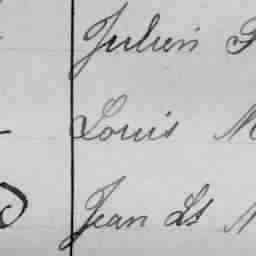 Julien
Louis M
Jean Ls